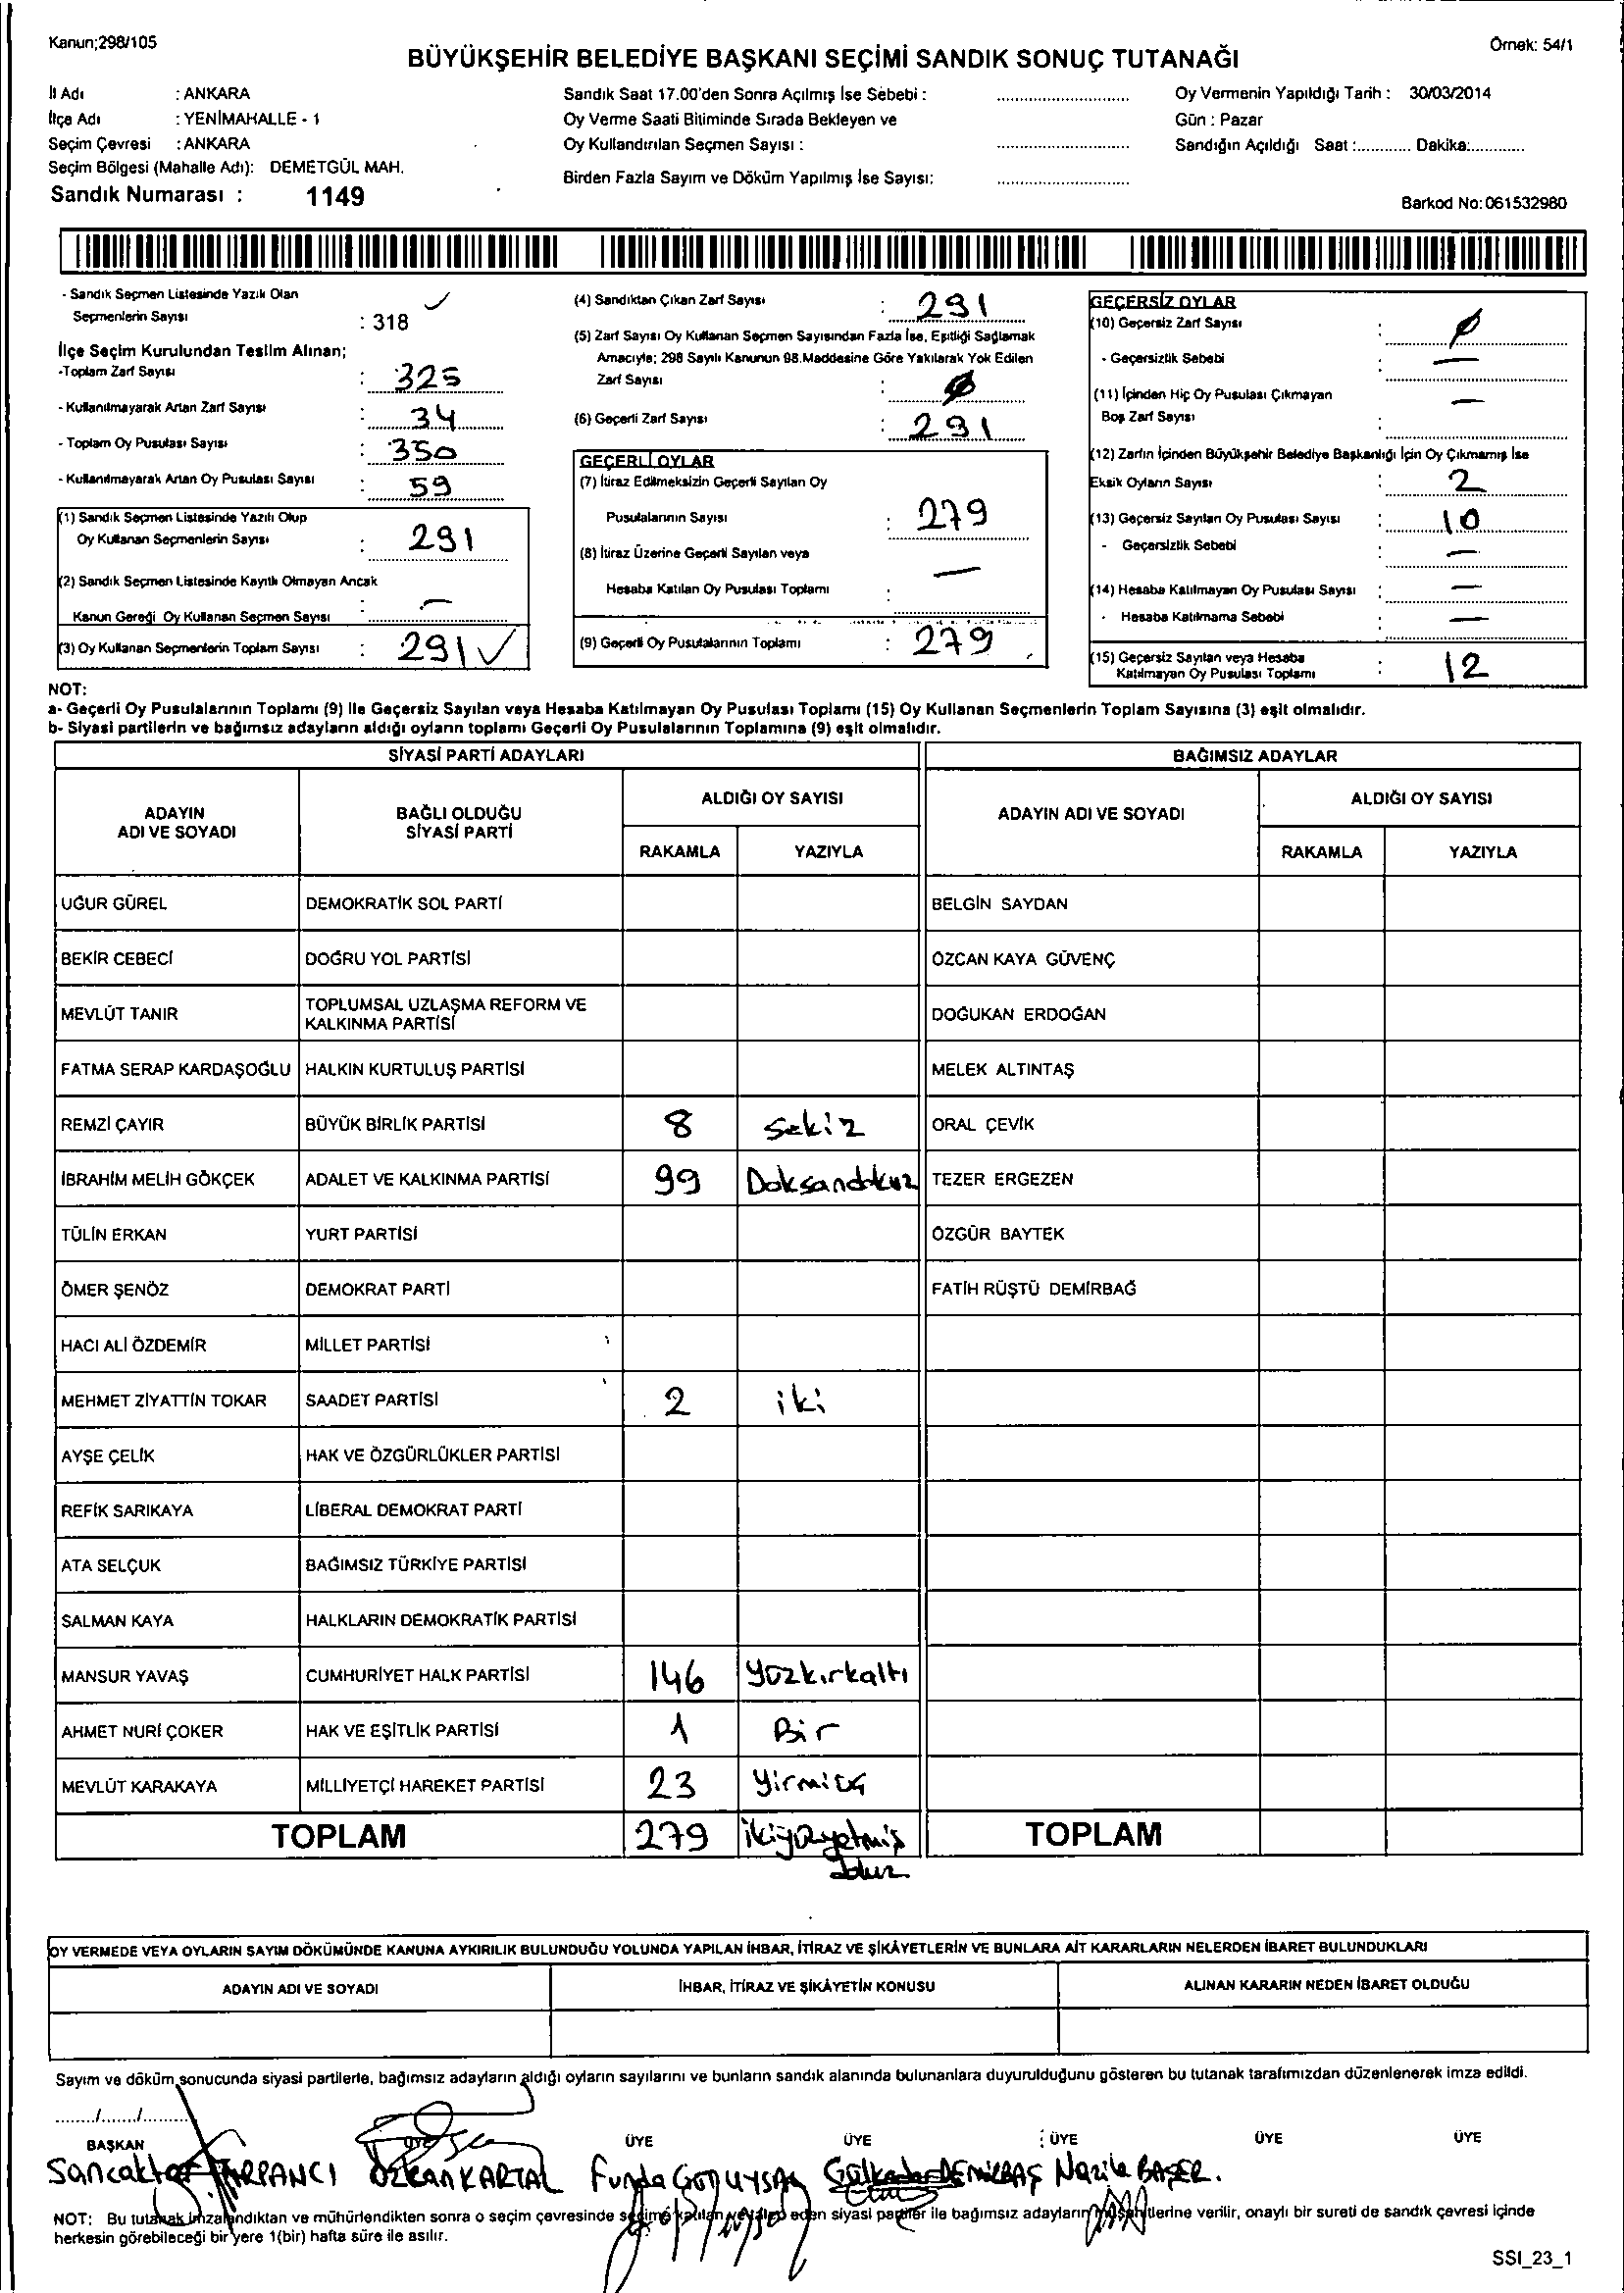 Kanun;298/105
BÜYÜKŞEHİR BELEDİYE BAŞKANI SEÇİMİ SANDIK SONUÇ TUTANAĞI
Örnek: 54/1
İl Adı : ANKARA
İlçe Adı : YENİMAHALLE - 1
Seçim Çevresi : ANKARA
Seçim Bölgesi (Mahalle Adı): DEMETGÜL MAH.
Sandık Numarası : 1149
Sandık Saat 17.00'den Sonra Açılmış İse Sebebi :
Oy Verme Saati Bitiminde Sırada Bekleyen ve
Oy Kullandırılan Seçmen Sayısı :
Birden Fazla Sayım ve Döküm Yapılmış İse Sayısı:
Oy Vermenin Yapıldığı Tarih : 30/03/2014
Gün : Pazar
Sandığın Açıldığı Saat :............ Dakika:............
Barkod No: 061532980
- Sandık Seçmen Listesinde Yazılı Olan
Seçmenlerin Sayısı : 318
İlçe Seçim Kurulundan Teslim Alınan;
-Toplam Zarf Sayısı : 325
- Kullanılmayarak Artan Zarf Sayısı : 34
- Toplam Oy Pusulası Sayısı : 350
- Kullanılmayarak Artan Oy Pusulası Sayısı : 59
(1) Sandık Seçmen Listesinde Yazılı Olup
Oy Kullanan Seçmenlerin Sayısı : 291
(2) Sandık Seçmen Listesinde Kayıtlı Olmayan Ancak
Kanun Gereği Oy Kullanan Seçmen Sayısı : —
(3) Oy Kullanan Seçmenlerin Toplam Sayısı : 291 ✓
(4) Sandıktan Çıkan Zarf Sayısı : 291
(5) Zarf Sayısı Oy Kullanan Seçmen Sayısından Fazla İse, Eşitliği Sağlamak
Amacıyla; 298 Sayılı Kanunun 98.Maddesine Göre Yakılarak Yok Edilen
Zarf Sayısı : Ø
(6) Geçerli Zarf Sayısı : 291
GEÇERLİ OYLAR
(7) İtiraz Edilmeksizin Geçerli Sayılan Oy
Pusulalarının Sayısı : 279
(8) İtiraz Üzerine Geçerli Sayılan veya
Hesaba Katılan Oy Pusulası Toplamı : —
(9) Geçerli Oy Pusulalarının Toplamı : 279
GEÇERSİZ OYLAR
(10) Geçersiz Zarf Sayısı : Ø
- Geçersizlik Sebebi : —
(11) İçinden Hiç Oy Pusulası Çıkmayan
Boş Zarf Sayısı : —
(12) Zarfın İçinden Büyükşehir Belediye Başkanlığı İçin Oy Çıkmamış İse
Eksik Oyların Sayısı : 2
(13) Geçersiz Sayılan Oy Pusulası Sayısı : 10
- Geçersizlik Sebebi : —
(14) Hesaba Katılmayan Oy Pusulası Sayısı : —
- Hesaba Katılmama Sebebi : —
(15) Geçersiz Sayılan veya Hesaba
Katılmayan Oy Pusulası Toplamı : 12
NOT:
a- Geçerli Oy Pusulalarının Toplamı (9) ile Geçersiz Sayılan veya Hesaba Katılmayan Oy Pusulası Toplamı (15) Oy Kullanan Seçmenlerin Toplam Sayısına (3) eşit olmalıdır.
b- Siyasi partilerin ve bağımsız adayların aldığı oyların toplamı Geçerli Oy Pusulalarının Toplamına (9) eşit olmalıdır.
SİYASİ PARTİ ADAYLARI
BAĞIMSIZ ADAYLAR
ADAYIN
ADI VE SOYADI
BAĞLI OLDUĞU
SİYASİ PARTİ
ALDIĞI OY SAYISI
RAKAMLA YAZIYLA
ADAYIN ADI VE SOYADI
ALDIĞI OY SAYISI
RAKAMLA YAZIYLA
UĞUR GÜREL DEMOKRATİK SOL PARTİ BELGİN SAYDAN
BEKİR CEBECİ DOĞRU YOL PARTİSİ ÖZCAN KAYA GÜVENÇ
MEVLÜT TANIR TOPLUMSAL UZLAŞMA REFORM VE
KALKINMA PARTİSİ DOĞUKAN ERDOĞAN
FATMA SERAP KARDAŞOĞLU HALKIN KURTULUŞ PARTİSİ MELEK ALTINTAŞ
REMZİ ÇAYIR BÜYÜK BİRLİK PARTİSİ 8 Sekiz ORAL ÇEVİK
İBRAHİM MELİH GÖKÇEK ADALET VE KALKINMA PARTİSİ 99 Doksandokuz TEZER ERGEZEN
TÜLİN ERKAN YURT PARTİSİ ÖZGÜR BAYTEK
ÖMER ŞENÖZ DEMOKRAT PARTİ FATİH RÜŞTÜ DEMİRBAĞ
HACI ALİ ÖZDEMİR MİLLET PARTİSİ
MEHMET ZİYATTİN TOKAR SAADET PARTİSİ 2 iki
AYŞE ÇELİK HAK VE ÖZGÜRLÜKLER PARTİSİ
REFİK SARIKAYA LİBERAL DEMOKRAT PARTİ
ATA SELÇUK BAĞIMSIZ TÜRKİYE PARTİSİ
SALMAN KAYA HALKLARIN DEMOKRATİK PARTİSİ
MANSUR YAVAŞ CUMHURİYET HALK PARTİSİ 146 yüzkırkaltı
AHMET NURİ ÇOKER HAK VE EŞİTLİK PARTİSİ 1 Bir
MEVLÜT KARAKAYA MİLLİYETÇİ HAREKET PARTİSİ 23 yirmiüç
TOPLAM 279 ikiyüzyetmiş TOPLAM
dokuz
OY VERMEDE VEYA OYLARIN SAYIM DÖKÜMÜNDE KANUNA AYKIRILIK BULUNDUĞU YOLUNDA YAPILAN İHBAR, İTİRAZ VE ŞİKÂYETLERİN VE BUNLARA AİT KARARLARIN NELERDEN İBARET BULUNDUKLARI
ADAYIN ADI VE SOYADI İHBAR, İTİRAZ VE ŞİKÂYETİN KONUSU ALINAN KARARIN NEDEN İBARET OLDUĞU
Sayım ve döküm sonucunda siyasi partilerle, bağımsız adayların aldığı oyların sayılarını ve bunların sandık alanında bulunanlara duyurulduğunu gösteren bu tutanak tarafımızdan düzenlenerek imza edildi.
......../......../........
BAŞKAN ÜYE ÜYE ÜYE ÜYE ÜYE ÜYE
ÖZKAN KARTAL Funda DEMİRBAŞ Nazile BAŞER.
NOT: Bu tutanak imzalandıktan ve mühürlendikten sonra o seçim çevresinde seçime katılan ve talep eden siyasi partiler ile bağımsız adayların müşahitlerine verilir, onaylı bir sureti de sandık çevresi içinde
herkesin görebileceği bir yere 1(bir) hafta süre ile asılır.
SSI_23_1